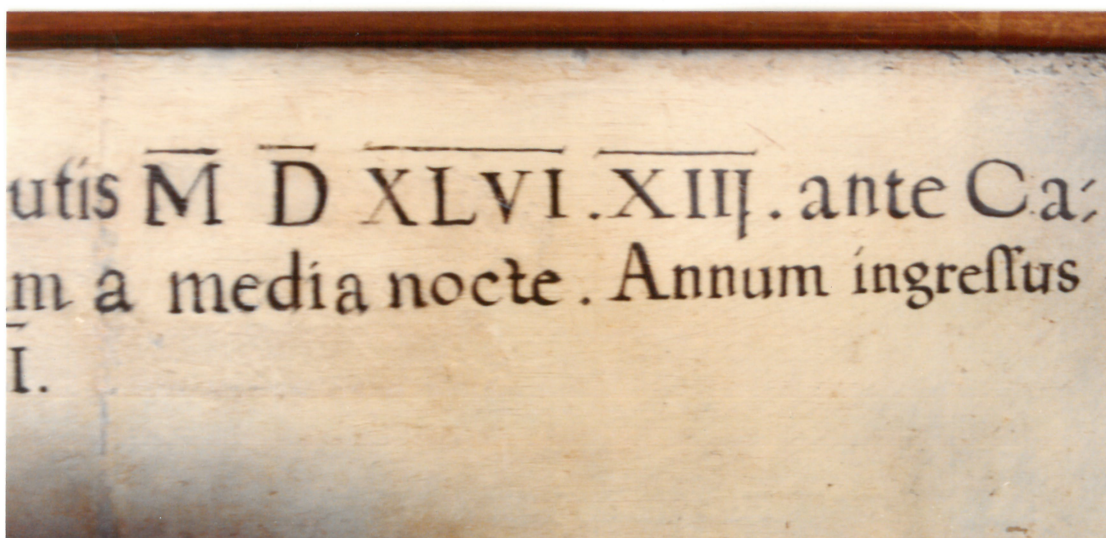 utis M̅ D̅ X̅L̅V̅I̅ . X̅I̅I̅J̅ . ante Ca⹀
m a media nocte . Annum ingreſſus
I̅.